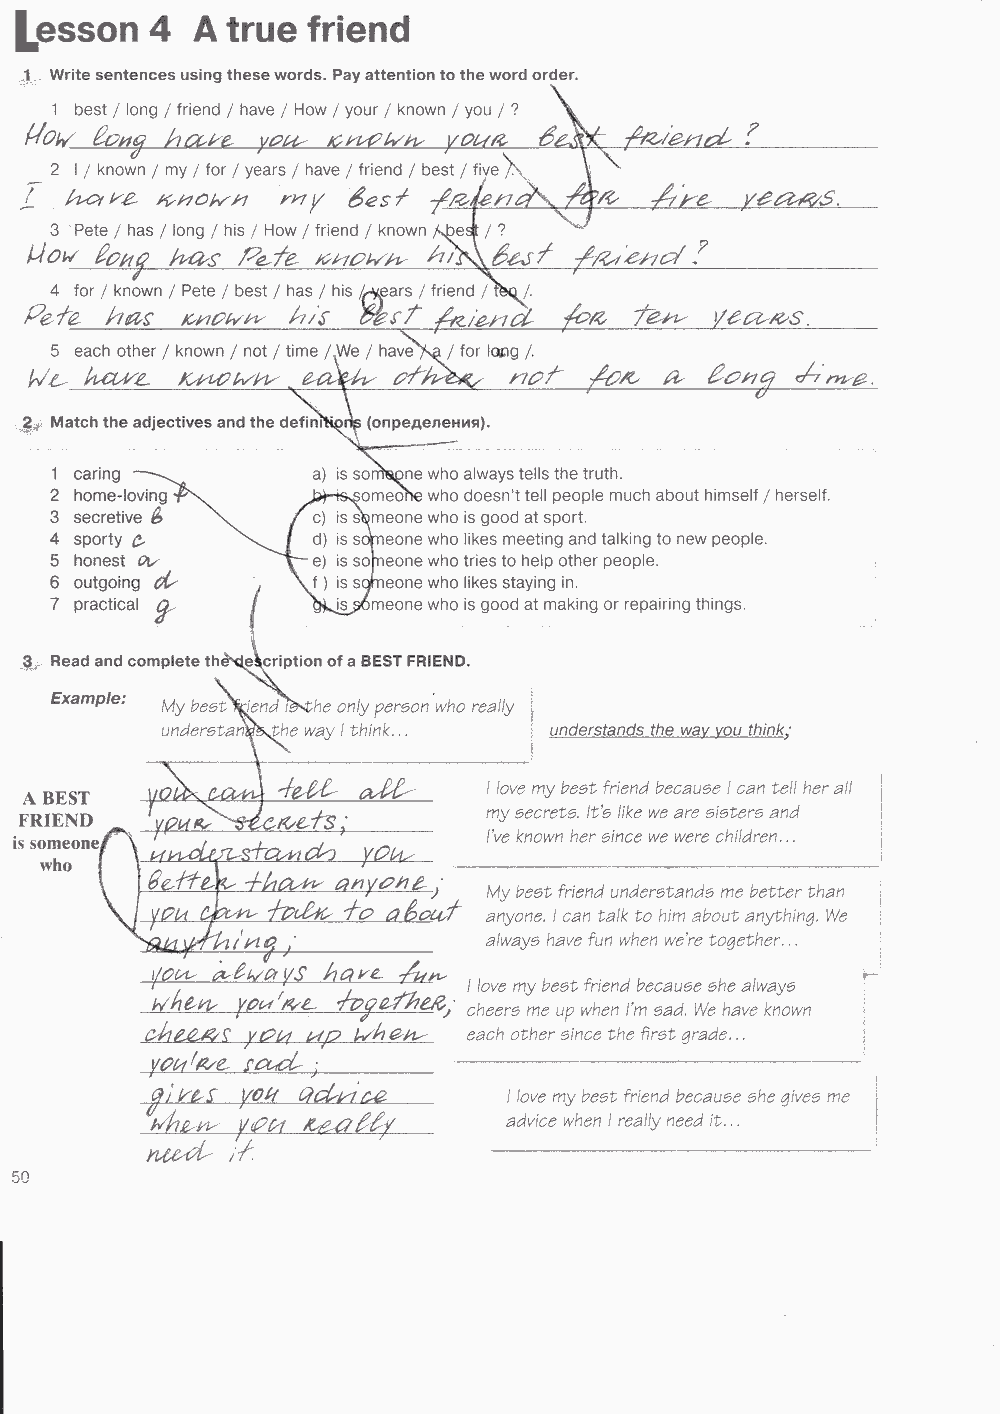 Lesson 4 A true friend
1 Write sentences using these words. Pay attention to the word order.
1 best / long / friend / have / How / your / known / you / ?
How long have you known your best friend?
2 I / known / my / for / years / have / friend / best / five /.
I have known my best friend for five years.
3 Pete / has / long / his / How / friend / known / best / ?
How long has Pete known his best friend?
4 for / known / Pete / best / has / his / years / friend / ten /.
Pete has known his best friend for ten years.
5 each other / known / not / time / We / have / a / for long /.
We have known each other not for a long time.
2 Match the adjectives and the definitions (определения).
1 caring a) is someone who always tells the truth.
2 home-loving f b) is someone who doesn't tell people much about himself / herself.
3 secretive b c) is someone who is good at sport.
4 sporty c d) is someone who likes meeting and talking to new people.
5 honest a e) is someone who tries to help other people.
6 outgoing d f) is someone who likes staying in.
7 practical g g) is someone who is good at making or repairing things.
3 Read and complete the description of a BEST FRIEND.
Example:
My best friend is the only person who really
understands the way I think...
understands the way you think;
A BEST
FRIEND
is someone
who
you can tell all
your secrets;
understands you
better than anyone;
you can talk to about
anything;
you always have fun
when you're together;
cheers you up when
you're sad;
gives you advice
when you really
need it.
I love my best friend because I can tell her all
my secrets. It's like we are sisters and
I've known her since we were children...
My best friend understands me better than
anyone. I can talk to him about anything. We
always have fun when we're together...
I love my best friend because she always
cheers me up when I'm sad. We have known
each other since the first grade...
I love my best friend because she gives me
advice when I really need it...
50